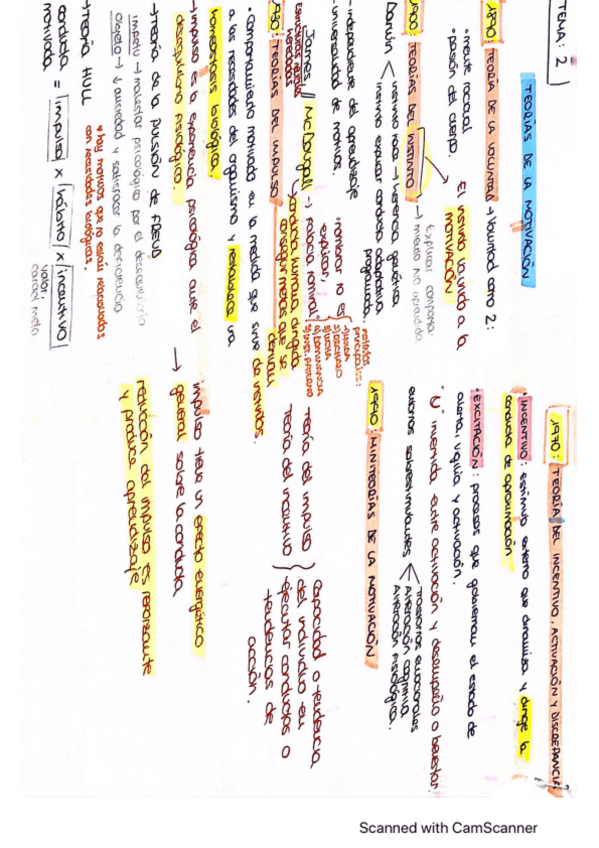 TEMA: 2
TEORÍAS DE LA MOTIVACIÓN
TEORÍA DE LA VOLUNTAD → Voluntad como 2:
• mente racional
• pasión del cuerpo.
El instinto va unido a la
MOTIVACIÓN
TEORÍAS DEL INSTINTO → Explicar comporta.
innato NO aprendido
Darwin < instinto nace → herencia genética
instinto explicar conducta adaptativa
programada.
independiente del aprendizaje
universalidad de motivos.
James // McDougall → falacia nominal:
nombrar no es
explicar,
→ conducta humana dirigida
conseguir metas que se
TEORÍAS DEL IMPULSO
• Comportamiento motivado en la medida que sirve
a las necesidades del organismo y restablezca una
homeostasis biológica.
→ impulso es la experiencia psicológica ante el
desequilibrio fisiológico.
→ TEORÍA de la pulsión de FREUD
ímpetu → malestar psicológico por el desequilibrio
objeto → ↓ ansiedad y satisfacer la deficiencia
* hay motivos que no están relacionados
con necesidades biológicas.
→ TEORÍA HULL
conducta motivada = impulso x hábito x incentivo
valor,
caract meta
1970: TEORÍA DEL INCENTIVO, ACTIVACIÓN Y DISCREPANCIA
• INCENTIVO: estímulo externo que dinamiza y dirige la
conducta de aproximación
• EXCITACIÓN: procesos que gobiernan el estado de
alerta, vigilia y activación.
"U" invertida entre activación y desempeño o bienestar.
entornos sobreestimulantes < Trastornos emocionales
Alteración cognitiva
Alteración fisiológica.
1990: MINITEORÍAS DE LA MOTIVACIÓN
Teoría del impulso
Teoría del incentivo
} capacidad o tendencia
del individuo en
ejecutar conductas o
tendencias de
acción.
→ impulso tiene un efecto energético
general sobre la conducta
reducción del impulso es reforzante
y produce aprendizaje
Scanned with CamScanner